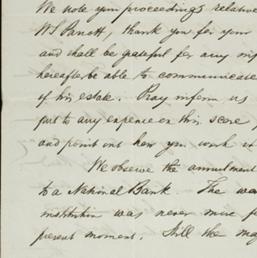 We note your proceedings relative
W S Panott, thank you for your
and shall be grateful for any inf
hereafter be able to communicate
of his estate. Pray inform us
put to any expence on this score
and point out how you work it
We observe the annulment
to a National Bank. The wa
institution was never more fe
present moment. Still the maj